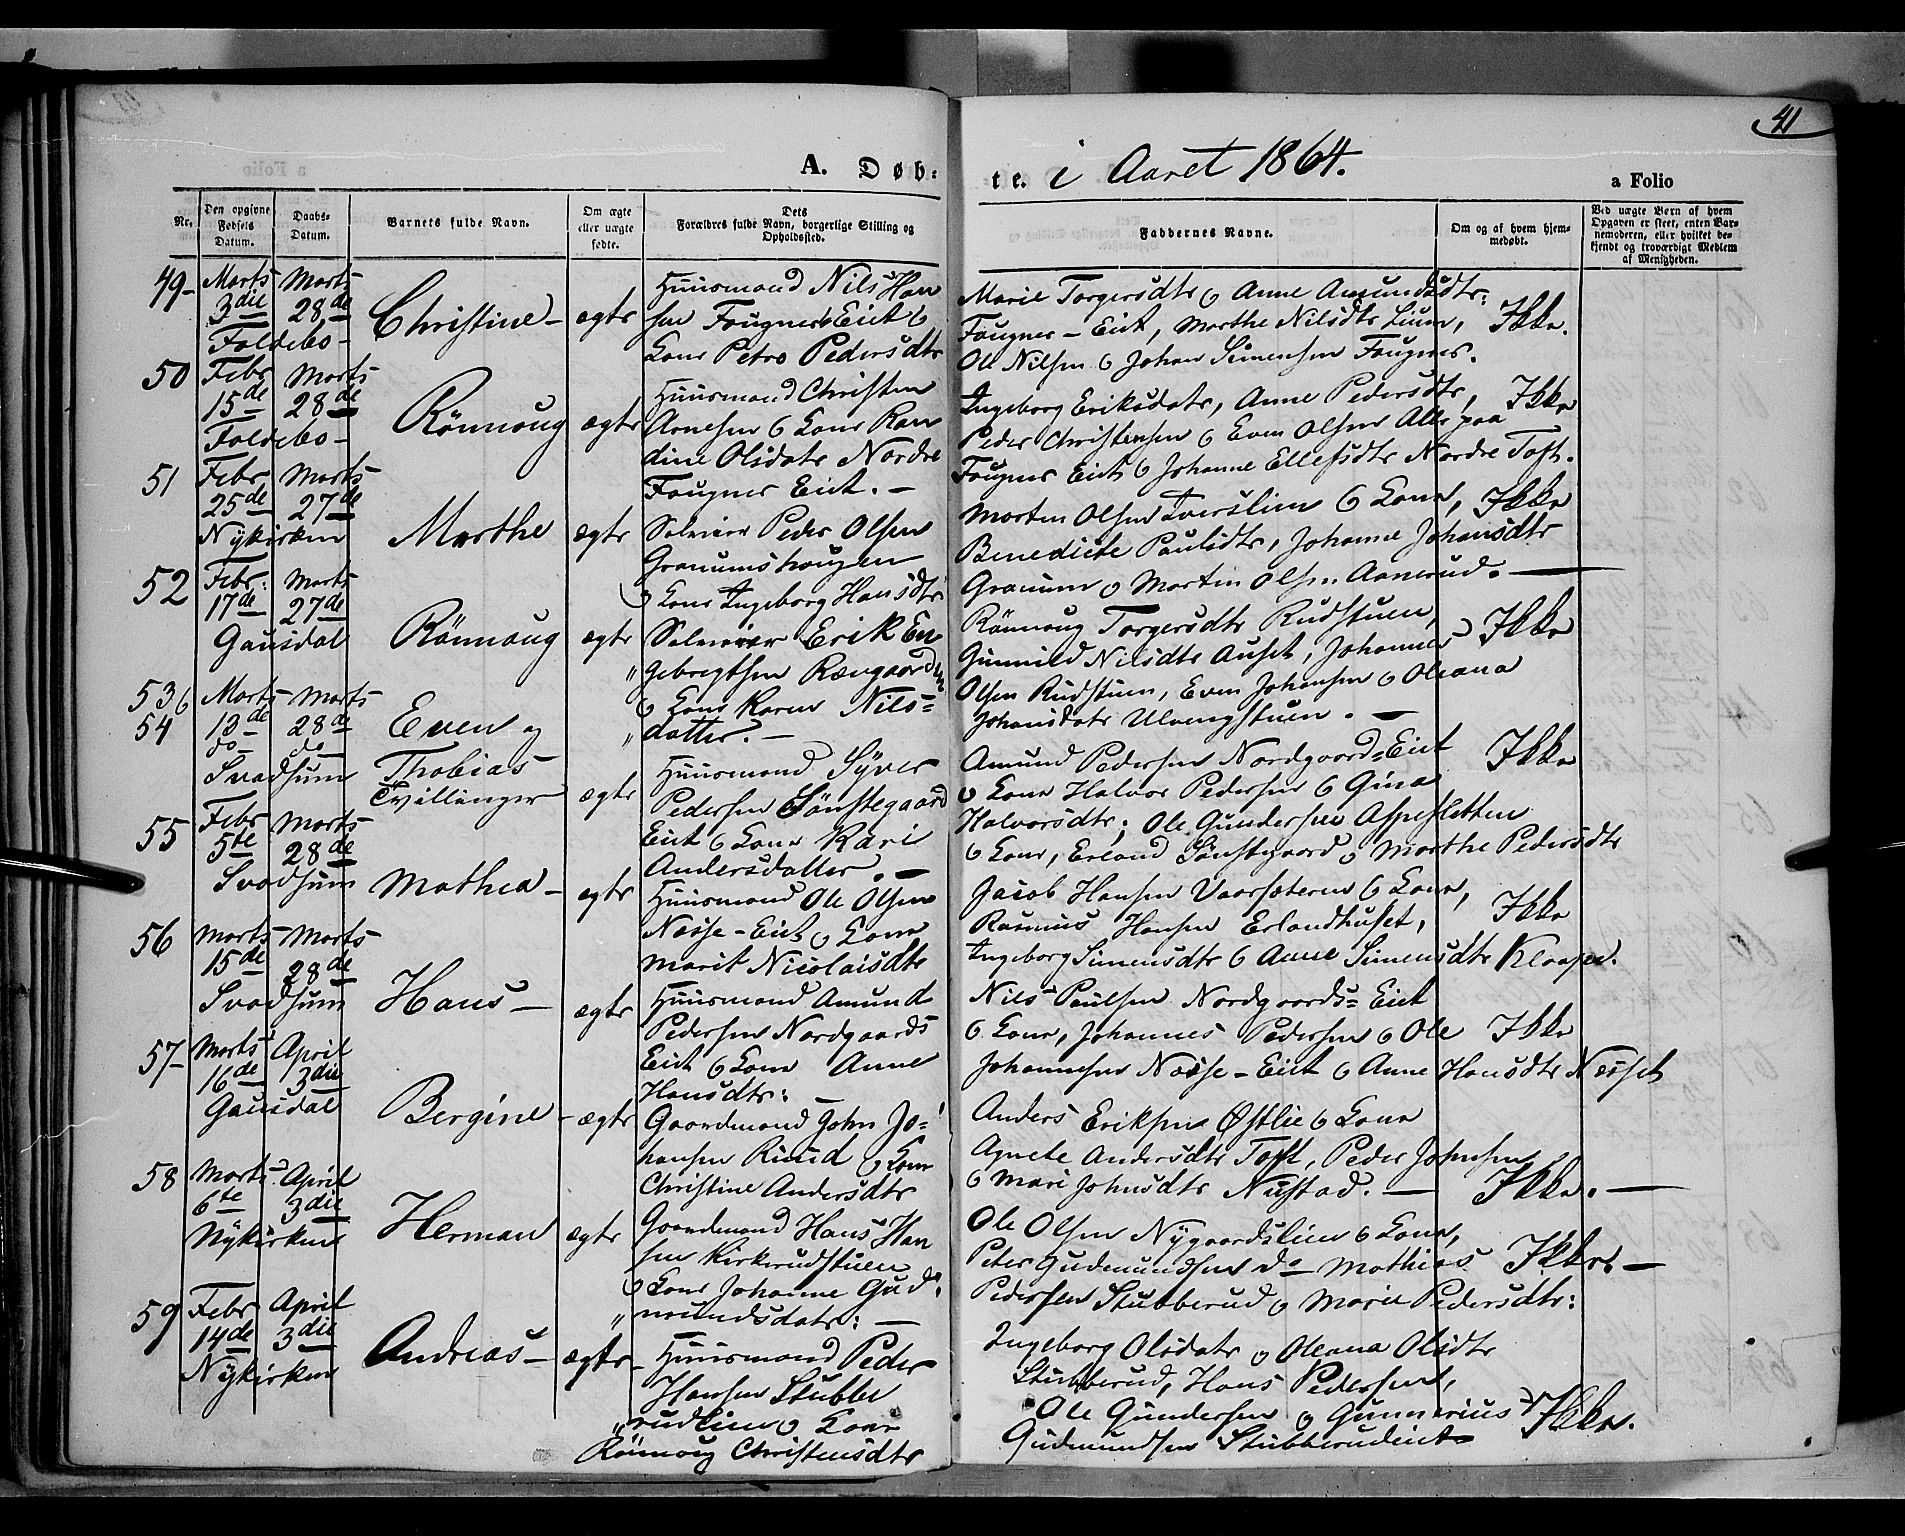 41
A. Døb=
te. i Aaret 1864.
a Folio
Nr.
Den opgivne Fødsels Datum.
Daabs-Datum.
Barnets fulde Navn.
Om ægte eller uægte født.
Dets Forældres fulde Navn, borgerlige Stilling og Opholdssted.
Faddernes Navne.
Om og af hvem hjemmedøbt.
Ved uægte Børn af hvem Opgaven er skeet, enten Barnemoderen, eller hvilket bekjendt og troværdigt Medlem af Menigheden.
49- Marts 3die Marts 28de
Foldebo-
Christine- ægte
Huusmand Nils Han
sen Fougner Eiet &
Kone Petro Pedersdtr
Marie Torgersdtr & Anne Amundsdtr:
Fougner-Eiet, Marthe Nilsdtr Lium,
Ole Nilsen & Johan Simensen Fougner.
Ikke.
50 Febr 15de Marts 28de
Foldebo-
Rönnoug ægte
Huusmand Christen
Arnesen & Kone Ran
dine Olsdatr Nordre
Fougner Eiet.-
Ingeborg Eriksdatr, Anne Pedersdtr,
Peder Christensen & Even Olsen Alle paa
Fougner Eiet & Johanne Ellefsdtr Nordre Toft.
Ikke
51 Febr 25de Marts 27de
Nykirken
Marthe ægte
Selveier Peder Olsen
Granumshaugen
& Kone Ingeborg Hansdtr
Morten Olsen Tverslien & Kone,
Benedicte Paulsdtr, Johanne Johansdtr
Granum & Martin Olsen Aanerud.-
Ikke
52 Febr: 17de Marts 27de
Gausdal
Rönnoug ægte
Selveier Erik En
gebregtsen Rævgaarden
& Kone Karen Nils=
datter.-
Rönnoug Torgersdtr Rudstuen,
Gunnild Nilsdtr Auset, Johannes
Olsen Rudstuen, Even Johansen & Oleana
Johansdatr Ulvengstuen.-
Ikke
53 &
54 Marts 13de do Marts 28de do
Svadsum
Even og
Thobias
Tvillinger ægte
Huusmand Syver
Pedersen Sønstegaard
Eiet & Kone Kari
Andersdatter.-
Amund Pedersen Nordgaard=Eiet
& Kone Halvor Pedersen & Gina
Halvorsdtr; Ole Gundersen Aspesletten
& Kone, Erland Sønstegaard & Marthe Pedersdtr
Ikke
55 Febr 5te Marts 28de
Svadsum
Mathea- ægte
Huusmand Ole Olsen
Næsse-Eiet & Kone
Marit Nicolaisdtr
Jacob Hansen Vaarsæteren & Kone,
Rasmus Hansen Erlandhuset,
Ingeborg Simensdtr & Anne Simensdtr
Ikke
56 Marts 15de Marts 28de
Svadsum
Hans- ægte
Huusmand Amund
Pedersen Nordgaards
Eiet & Kone Anne
Hansdtr:
Nils Paulsen Nordgaards=Eiet
& Kone, Johannes Pedersen & Ole
Johannesen Næsse-Eiet & Anne Hansdtr Næsset
Ikke
57- Marts 16de April 3die
Gausdal
Bergine- ægte
Gaardmand John Jo=
hansen Ruud & Kone
Christine Andersdtr
Anders Eriksen Østlie & Kone
Agnete Andersdtr Toft, Peder Johnsen
& Mari Johnsdtr Nustad.-
Ikke.-
58 Marts 6te April 3die
Nykirken
Herman ægte
Gaardmand Hans Han
sen Kirkerudstuen
& Kone Johanne Gud
mundsdatr:-
Ole Olsen Nygaardslien & Kone,
Peter Gudmundsen do Mathias
Pedersen Stubberud & Marie Pedersdtr:
Ikke.-
59 Febr 14de April 3die
Nykirken
Andreas- ægte-
Huusmand Peder
Hansen Stubbe
rudlien & Kone
Rönnoug Christensdtr
Ingeborg Olsdatr & Oleana Olsdtr
Stubberud, Hans Pedersen,
Ole Gundersen & Gunnerius
Gudmundsen Stubberudeiet
Ikke.